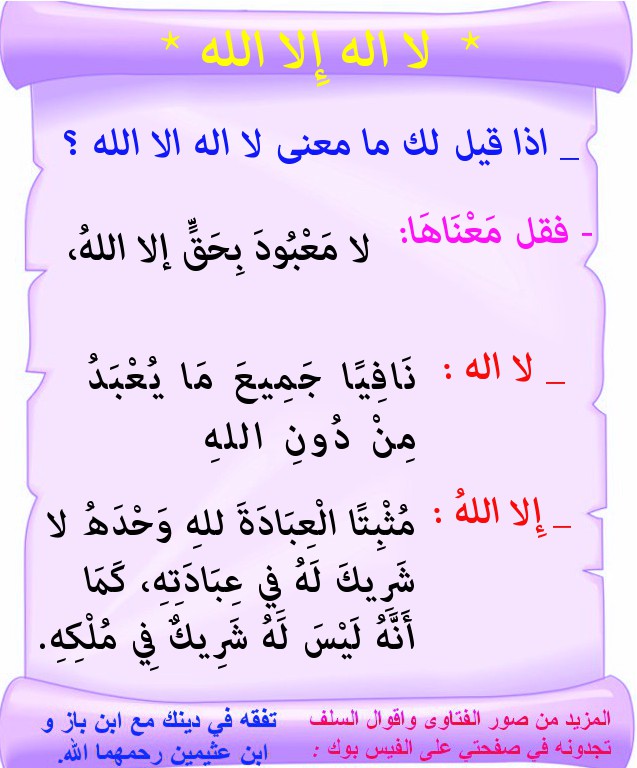 * لا اله إِلا الله *
_ اذا قيل لك ما معنى لا اله الا الله ؟
- فقل مَعْنَاهَا: لا مَعْبُودَ بِحَقٍّ إلا اللهُ،
_ لا اله : نَافِيًا جَمِيعَ مَا يُعْبَدُ
مِنْ دُونِ اللهِ
_ إِلا اللهُ : مُثْبِتًا الْعِبَادَةَ للهِ وَحْدَهُ لا
شَرِيكَ لَهُ فِي عِبَادَتِهِ، كَمَا
أَنَّهُ لَيْسَ لَهُ شَرِيكٌ فِي مُلْكِهِ.
المزيد من صور الفتاوى واقوال السلف
تجدونه في صفحتي على الفيس بوك :
تفقه في دينك مع ابن باز و
ابن عثيمين رحمهما الله.